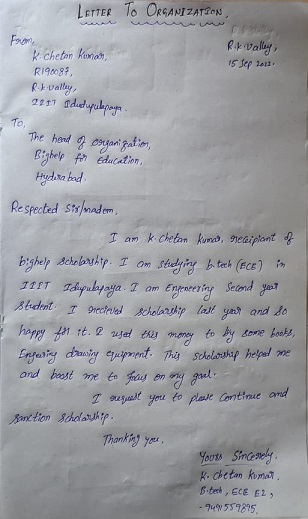 LETTER TO ORGANIZATION.
From,
R.k.valley,
15 Sep 2022.
K. chetan kumar,
R190087,
R.k.valley,
IIIT Idudupulapaya.
To,
The head of organization,
Bighelp for Education,
Hyderabad.
Respected Sir/madem,
I am k.chetan kumar, recipiant of
bighelp scholarship. I am studying b.tech (ECE) in
IIIT Idupulapaya. I am Engineering Second year
Student. I recieved scholarship last year and so
happy for it. I used this money to by some books,
Engearing drawing equipment. This scholorship helped me
and boost me to focus on my goal.
I request you to please continue and
sanction scholarship.
Thanking you,
Yours Sincerely.
K. chetan kumar,
B.tech, ECE E2,